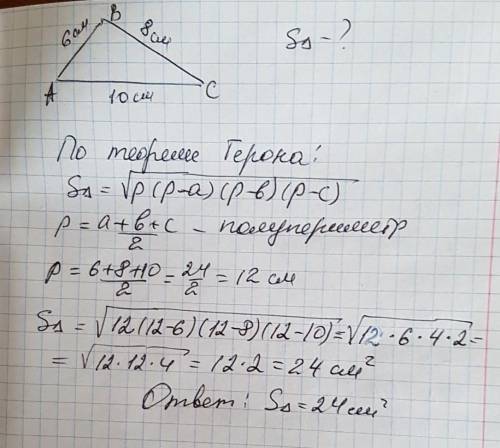 B
6см 8см S△ - ?
A 10 см C
По теореме Герона:
S△ = √p(p-a)(p-в)(p-c)
p = a+в+c/2 - полупериметр
p = 6+8+10/2 = 24/2 = 12 см
S△ = √12(12-6)(12-8)(12-10) = √12·6·4·2 =
= √12·12·4 = 12·2 = 24 см²
Ответ: S△ = 24 см²